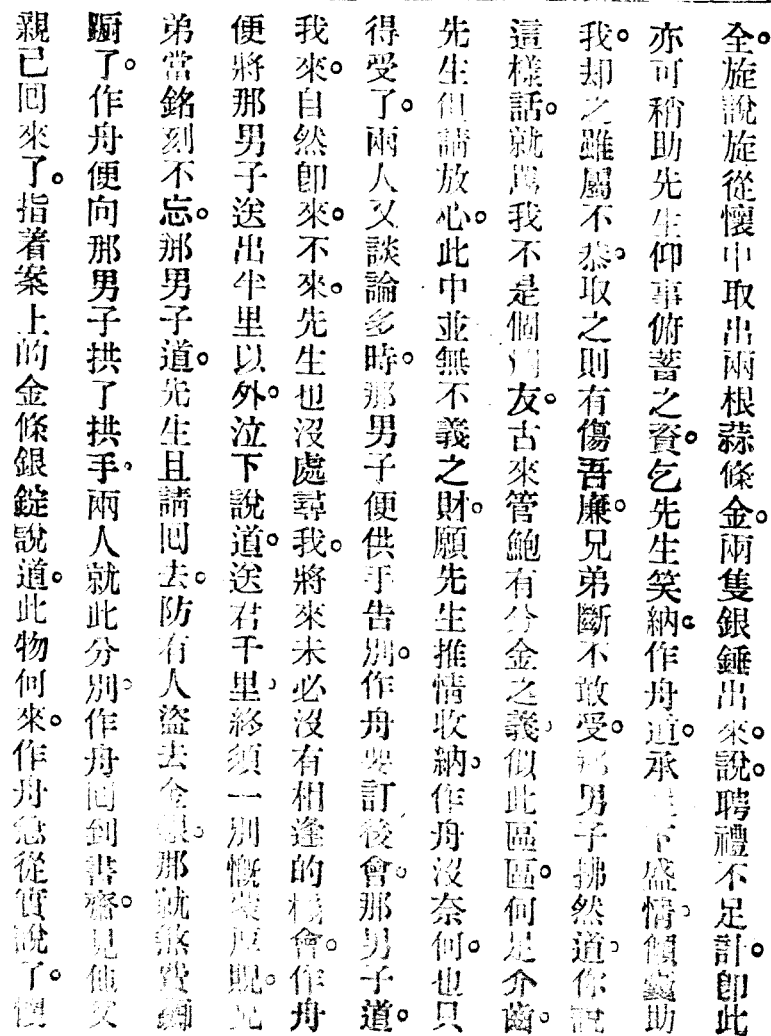 全。旋說旋從懷中取出兩根蒜條金。兩隻銀錘出來。說。聘禮不足計。卽此
亦可稍助先生仰事俯蓄之資。乞先生笑納。作舟道。承足下盛情。傾囊助
我。却之雖屬不恭。取之則有傷吾廉。兄弟斷不敢受。那男子拂然道。你說
這樣話。就罵我不是個朋友。古來管鮑有分金之義。似此區區。何足介齒。
先生但請放心。此中並無不義之財。願先生推情收納。作舟沒奈何。也只
得受了。兩人又談論多時。那男子便供手告別。作舟要訂後會。那男子道。
我來。自然卽來。不來。先生也沒處尋我。將來未必沒有相逢的機會。作舟
便將那男子送出半里以外。泣下說道。送君千里。終須一別。慨蒙厚貺。兄
弟當銘刻不忘。那男子道。先生且請囘去。防有人盜去金銀。那就煞費躊
躕了。作舟便向那男子拱了拱手。兩人就此分別。作舟囘到書齋。見他父
親已囘來了。指着案上的金條銀錠說道。此物何來。作舟急從實說了。